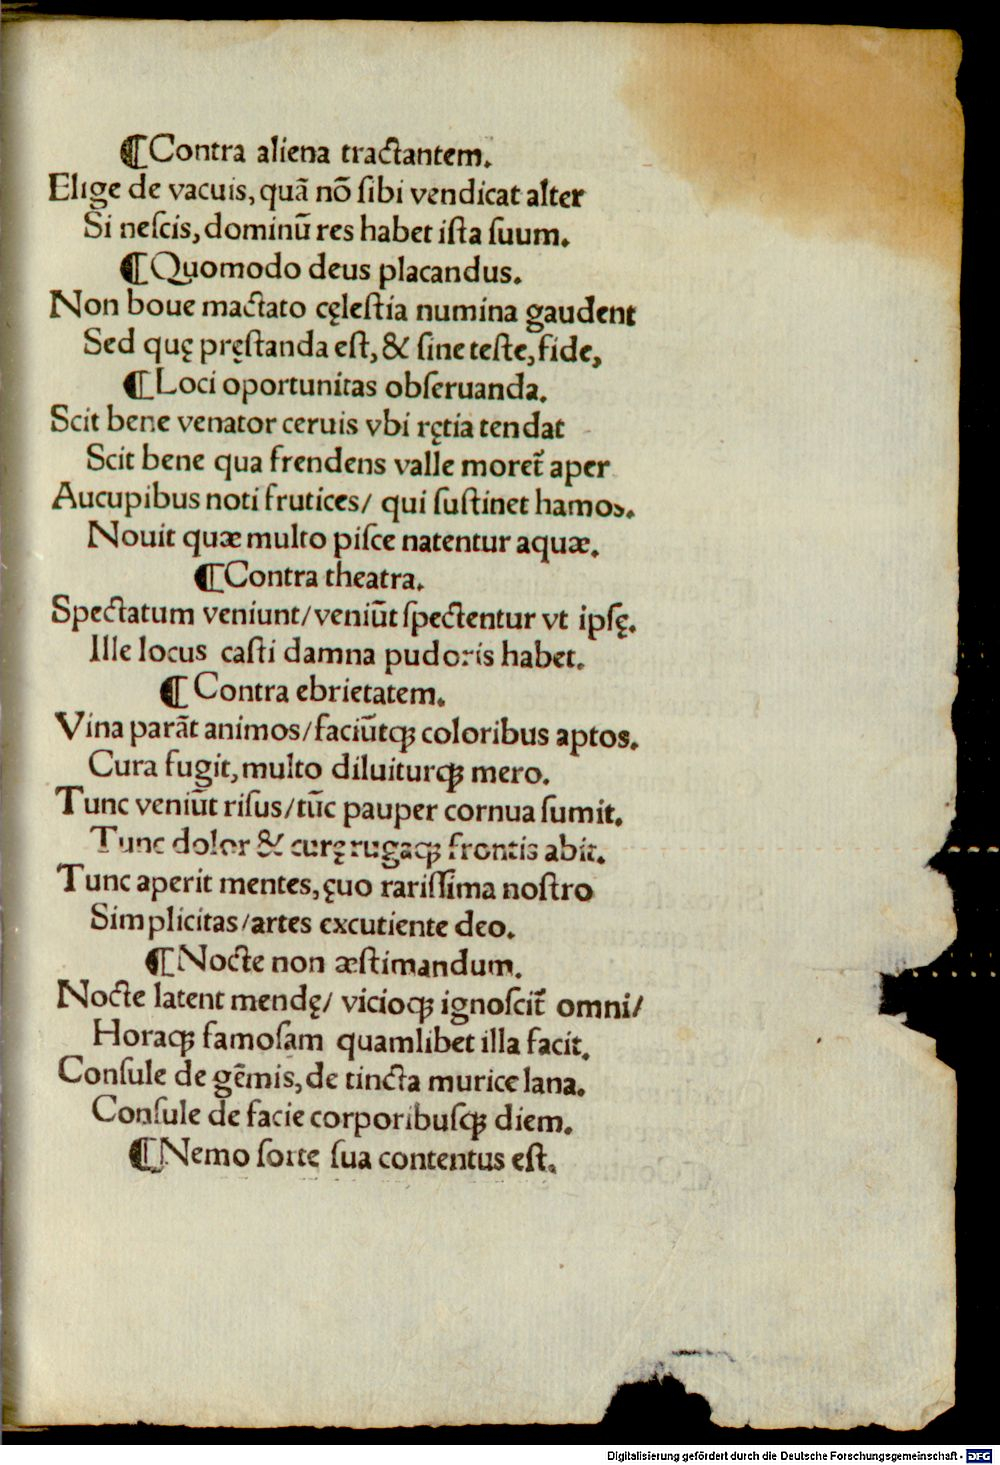 ¶Contra aliena tractantem.
Elige de vacuis, quā nō ſibi vendicat alter
Si neſcis, dominū res habet iſta ſuum.
¶Quomodo deus placandus.
Non boue mactato cęleſtia numina gaudent
Sed quę pręſtanda eſt, & ſine teſte, fide,
¶Loci oportunitas obſeruanda.
Scit bene venator ceruis vbi rętia tendat
Scit bene qua frendens valle moret̃ aper
Aucupibus noti frutices/ qui ſuſtinet hamos.
Nouit quæ multo piſce natentur aquæ.
¶Contra theatra.
Spectatum veniunt/veniūt ſpectentur vt ipſę.
Ille locus caſti damna pudoris habet.
¶Contra ebrietatem.
Vina parāt animos/faciūtqꝫ coloribus aptos.
Cura fugit, multo diluiturqꝫ mero.
Tunc veniūt riſus/tūc pauper cornua ſumit.
Tunc dolor & curę rugaqꝫ frontis abit.
Tunc aperit mentes, ęuo rariſſima noſtro
Simplicitas/artes excutiente deo.
¶Nocte non æſtimandum.
Nocte latent mendę/ vicioqꝫ ignoſcit̃ omni/
Horaqꝫ famoſam quamlibet illa facit.
Conſule de gēmis, de tincta murice lana.
Conſule de facie corporibuſqꝫ diem.
¶Nemo ſorte ſua contentus eſt.
Digitalisierung gefördert durch die Deutsche Forschungsgemeinschaft - DFG